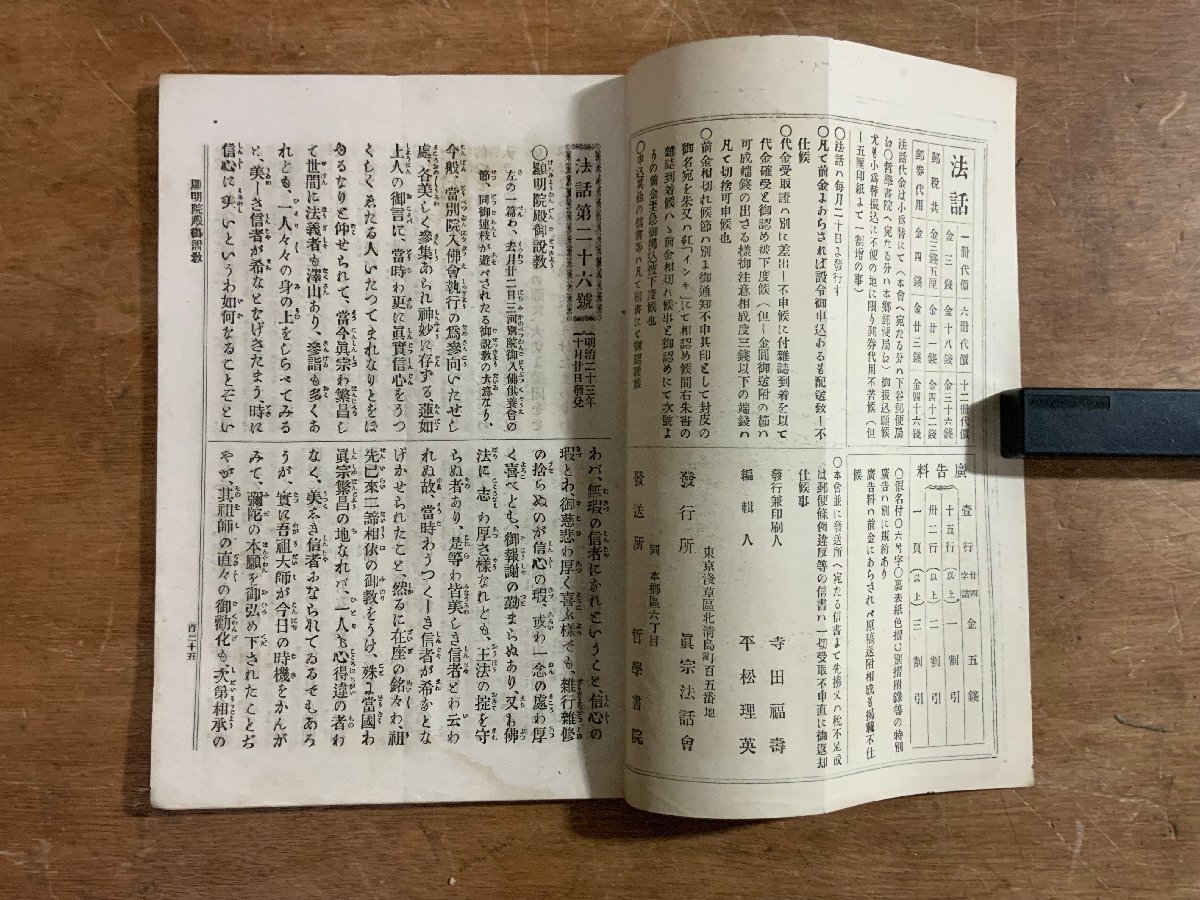 法話
一冊代價 六冊代價 十二冊代價
金三錢 金十八錢 金三十六錢
郵税共 金三錢五厘 金廿一錢 金四十二錢
郵券代用 金四錢 金廿三錢 金四十六錢
法話代金は小爲替にて(本會へ宛たる分ハ下谷郵便局
に〇哲學書院へ宛たる分ハ本郷郵便局に)御振込願候
尤も小爲替振込に不便の地に限り郵券代用不苦候(但
し五厘印紙よて一割增の事)
〇法話ハ毎月二十日よ發行す
〇凡て前金よあらされば設令御申込あるも配送致し不
仕候
〇代金受取證ハ別に差出し不申候に付雜誌到着を以て
代金確受と御認め被下度候(但し金圓御送附の節ハ
可成端錢の出さる樣御注意相成度三錢以下の端錢ハ
凡て切捨可申候)
〇前金相切れ候節ハ別よ御通知不申其印として封皮の
御名宛を朱又ハ紅「インキ」にて相認め候間右朱書の
雜誌到着候ハゝ前金相切れ候事と御認めにて次號よ
りの前金至急御拂込被下度候也
廣告料
壹行 廿四字詰 金五錢
十五行(以上) 一割引
卅二行(以上) 二割引
一頁(以上) 三割引
〇假名付〇六号字〇裏表紙色摺〇別摺附錄等の特別
廣告ハ別に規約あり
廣告料ハ前金にあらされべ原稿送附相成も掲載不仕
候
〇本會並に發送所へ宛たる信書よて先拂又ハ税不足或
は郵便條例違反等の信書ハ一切受取不申直に御返却
仕候事
發行兼印刷人 寺田福壽
編輯人 平松理英
東京淺草區北清島町百五番地
發行所 眞宗法話會
同 本郷區六丁目
發送所 哲學書院
法話第二十六號
明治二十三年
十月廿日發兌
〇顯明院殿御説敎
左の一篇わ、去月廿二日三河別院御入佛供養會の
節、同御連枝が遊べされたる御説敎の大畧なり、
今般、當別院入佛會執行の爲參向いたせし
處、各美しく參集あられ神妙に存ずる蓮如
上人の御言に、當時わ更に眞實信心をうつ
くしくゑたる人いたつてまれなりとをほ
ゆるなりと仰せられて、當今眞宗わ繁昌し
て世間に法義者も澤山あり、參詣も多くあ
れとも、一人々々の身の上をしらべてみる
と、美しき信者が希なとなげきたまう、時に
信心に美いというわ如何なることぞとい
わバ、無瑕の信者になれということ、信心の
瑕とわ、御慈悲わ厚く喜ぶ樣でも、雜行雜修
の捨らぬのが信心の瑕、或わ一念の處わ厚
く喜べとも、御報謝の勤まらぬあり、又も佛
法に志わ厚さ樣なれとも、王法の掟を守
らぬ者あり、是等わ皆美しき信者とわ云わ
れぬ故、當時わうつくしき信者が希なとな
げかせられたこと、然るに在座の銘々わ祖
先已來二諦相依の御敎をうけ、殊よ當國わ
眞宗繁昌の地なれバ、一人も心得違の者わ
なく、美しき信者ぉなられてゐるでもあろ
うが、實に吾祖大師が今日の時機をかんが
みて、彌陀の本願を御弘め下されたことぢ
やが、其祖師の直々の御勸化も、次第相承の
顯明院殿御説敎
百二十五